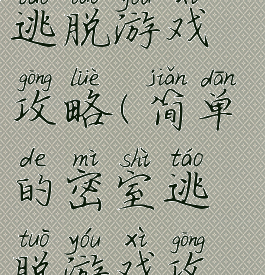 逃脱游戏
gōng lüè jiǎn dān
攻略(简单
de mì shì táo
的密室逃
tuō yóu xì gōng
脱游戏攻